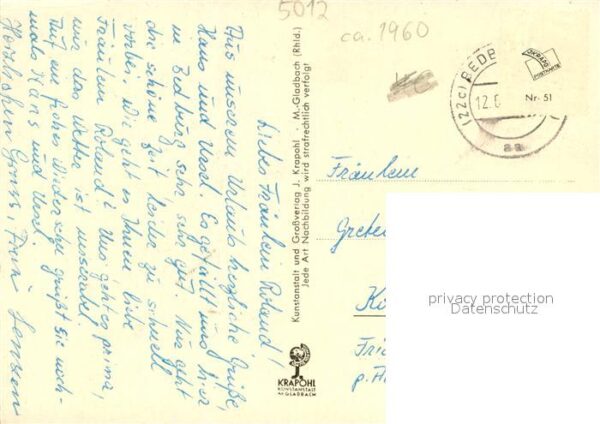 5012
ca. 1960
(22c) BEDB
12.6
aa
OKRAPO
POSTKARTE
Nr. 51
Liebes Fräulein Roland!
Aus unserem Urlaub herzliche Grüße,
Hans und Ursel. Es gefällt uns hier
in Bedburg sehr gut. Nur geht
die schöne Zeit leider zu schnell
Wie geht es Ihnen liebe
Fräulein Roland? Uns geht es prima,
nur das Wetter ist
Auf ein frohes Wiedersehn grüßt Sie noch-
mals Hans und Ursel
Herzlichen Gruss, Frau Jensen
Kunstanstalt und Großverlag J. Krapohl · M.-Gladbach (Rhld.)
Jede Art Nachbildung wird strafrechtlich verfolgt
KRAPOHL
KUNSTANSTALT
M.-GLADBACH
Fräulein
Grete
Kö
Frie
p. A
privacy protection
Datenschutz